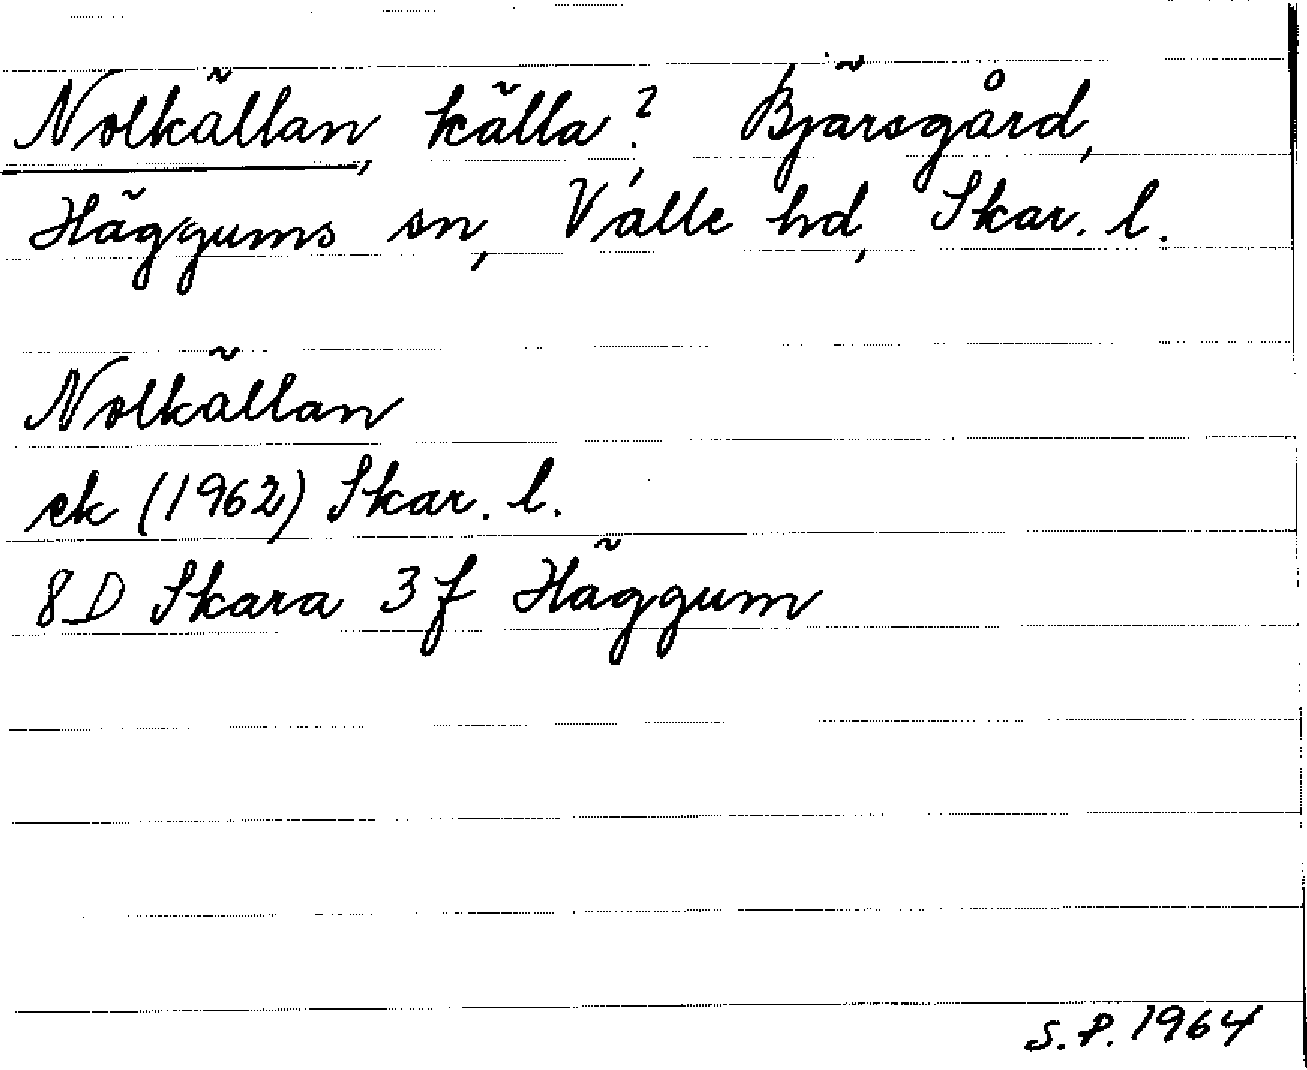 Nolkällan, källa? Bjärsgård,
Häggums sn, Valle hd, Skar. l.
Nolkällan
ek (1962) Skar. l.
8D Skara 3f Häggum
S.P. 1964